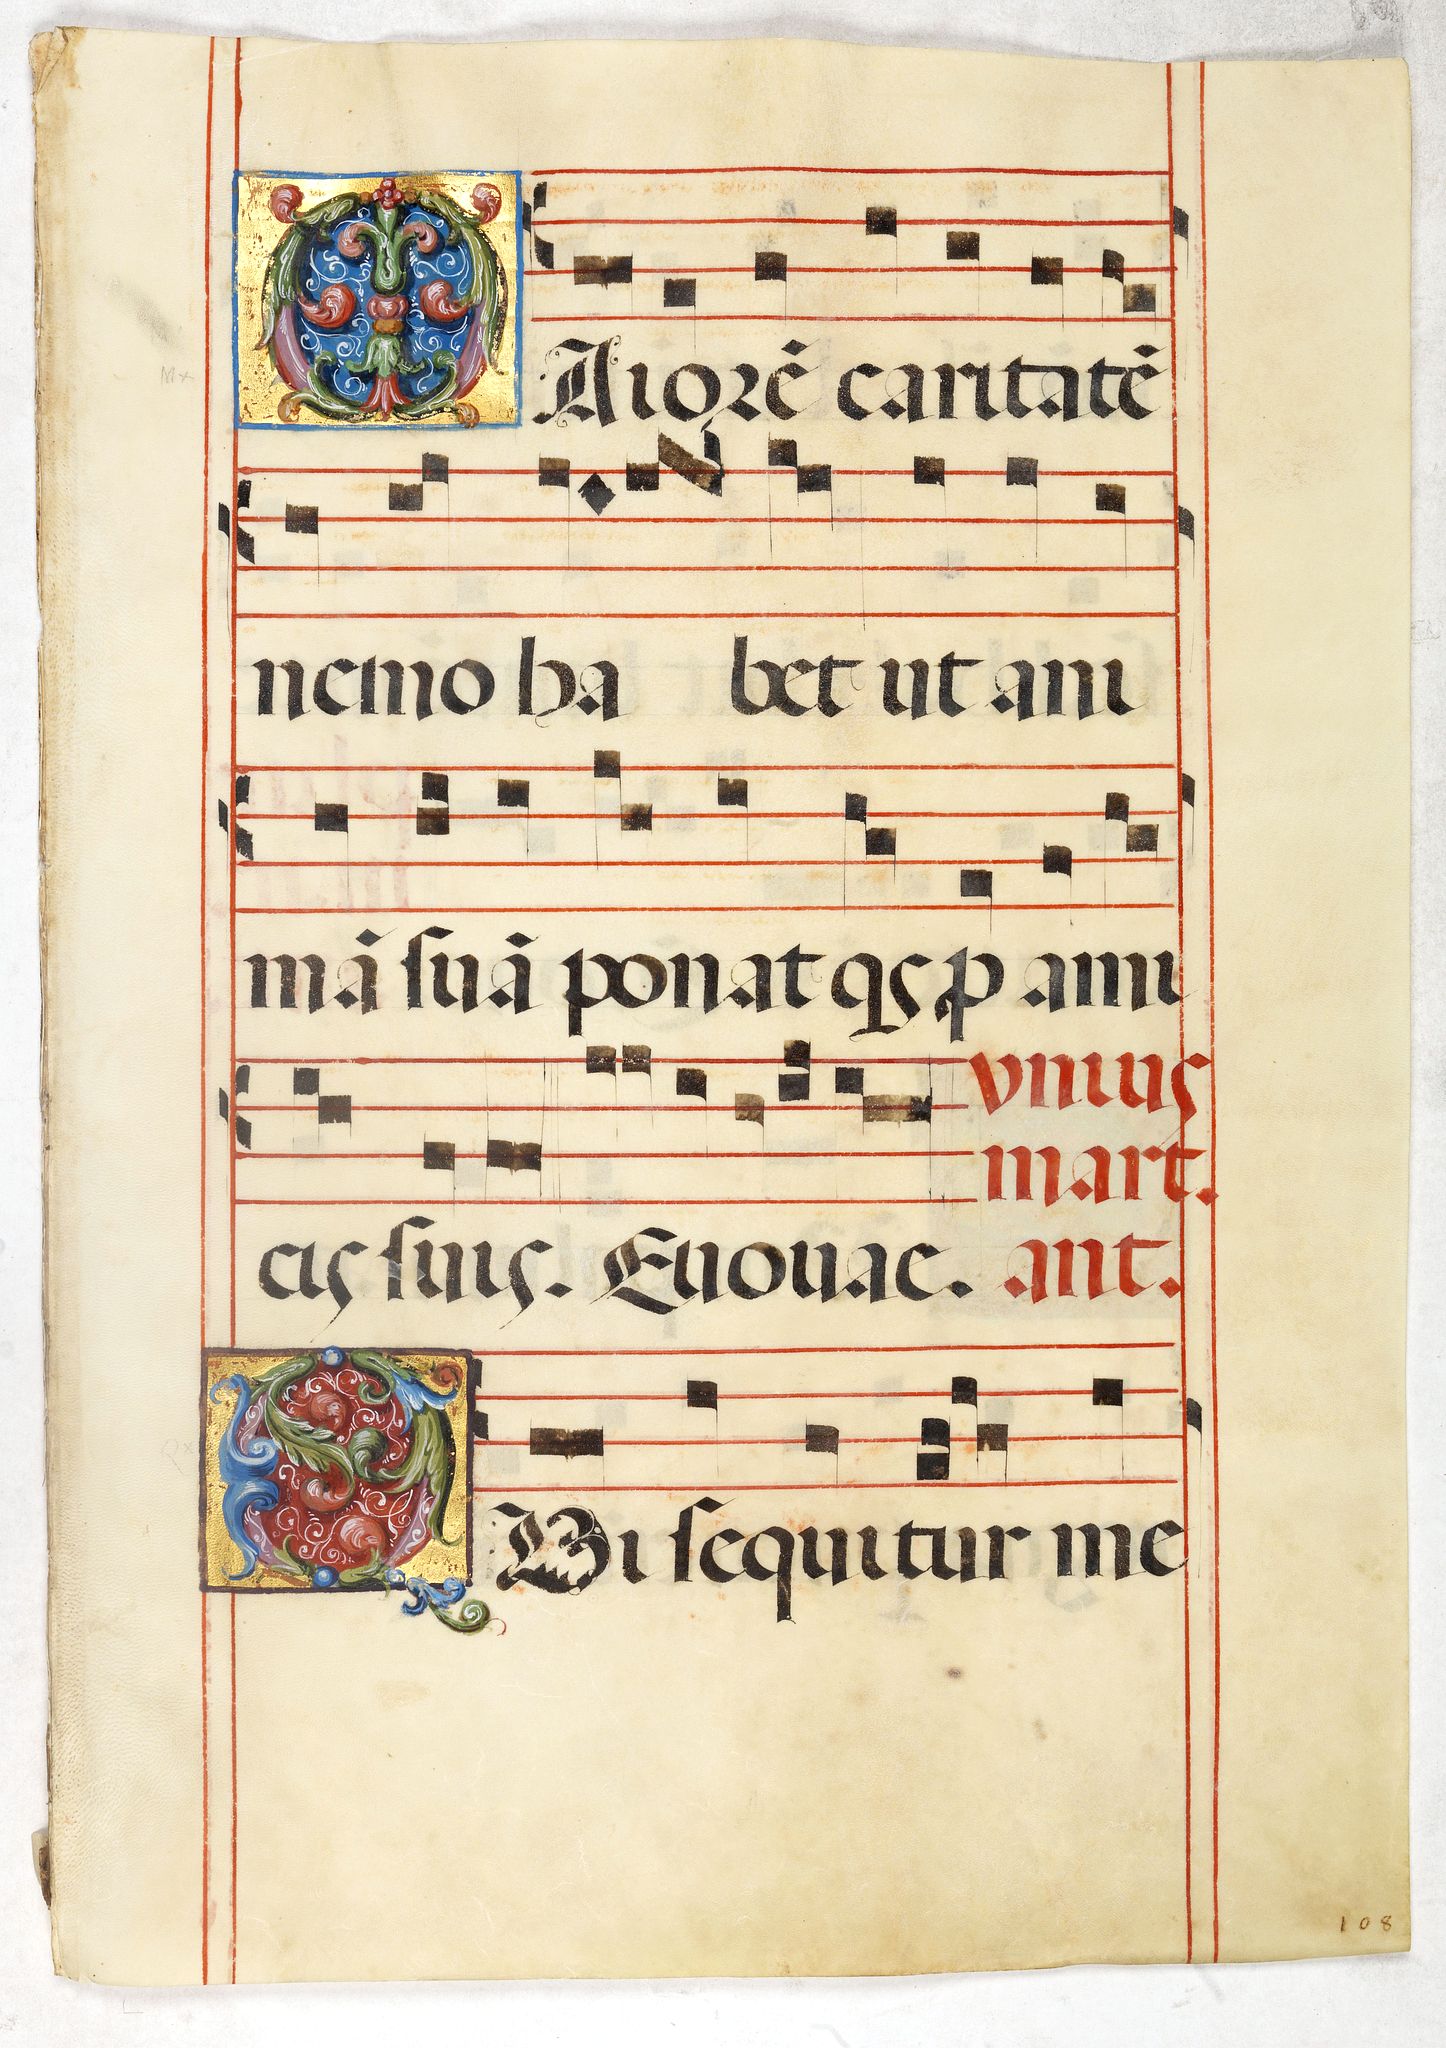 MAiorē caritatē
nemo ha bet ut ani
mā suā ponat qs p ami
vnius
mart.
cis suis. Euouae. ant.
QVi sequitur me
108